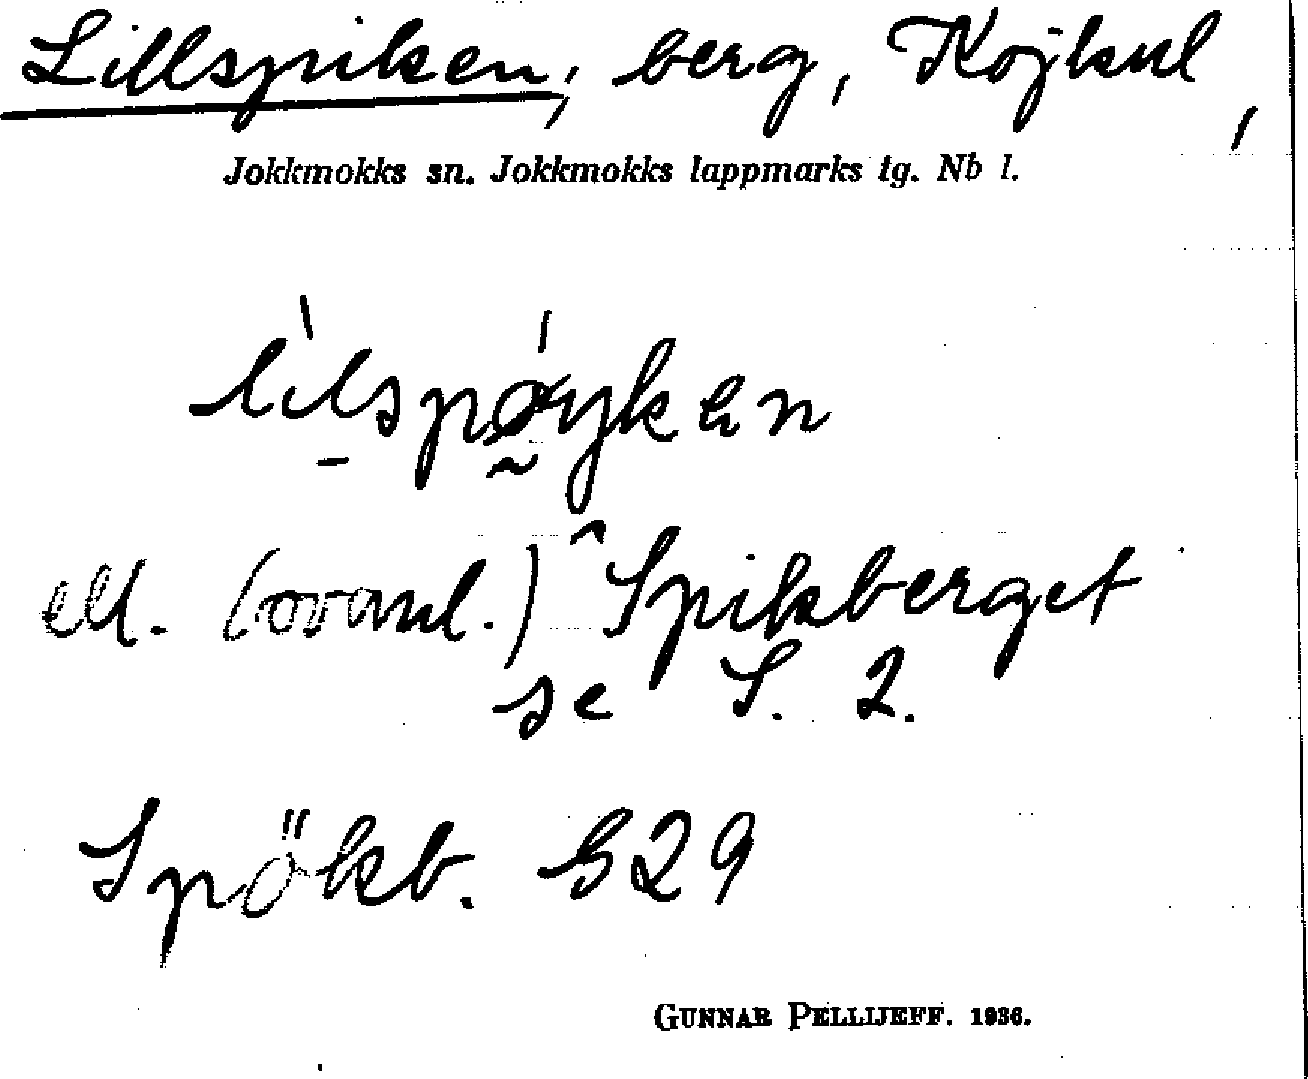 Lillspiken, berg, Kojkul,
Jokkmokks sn. Jokkmokks lappmarks tg. Nb l.
ell. (ovanl.) Spikberget
se S. 2.
Spökb. G29
GUNNAR PELLIJEFF. 1936.